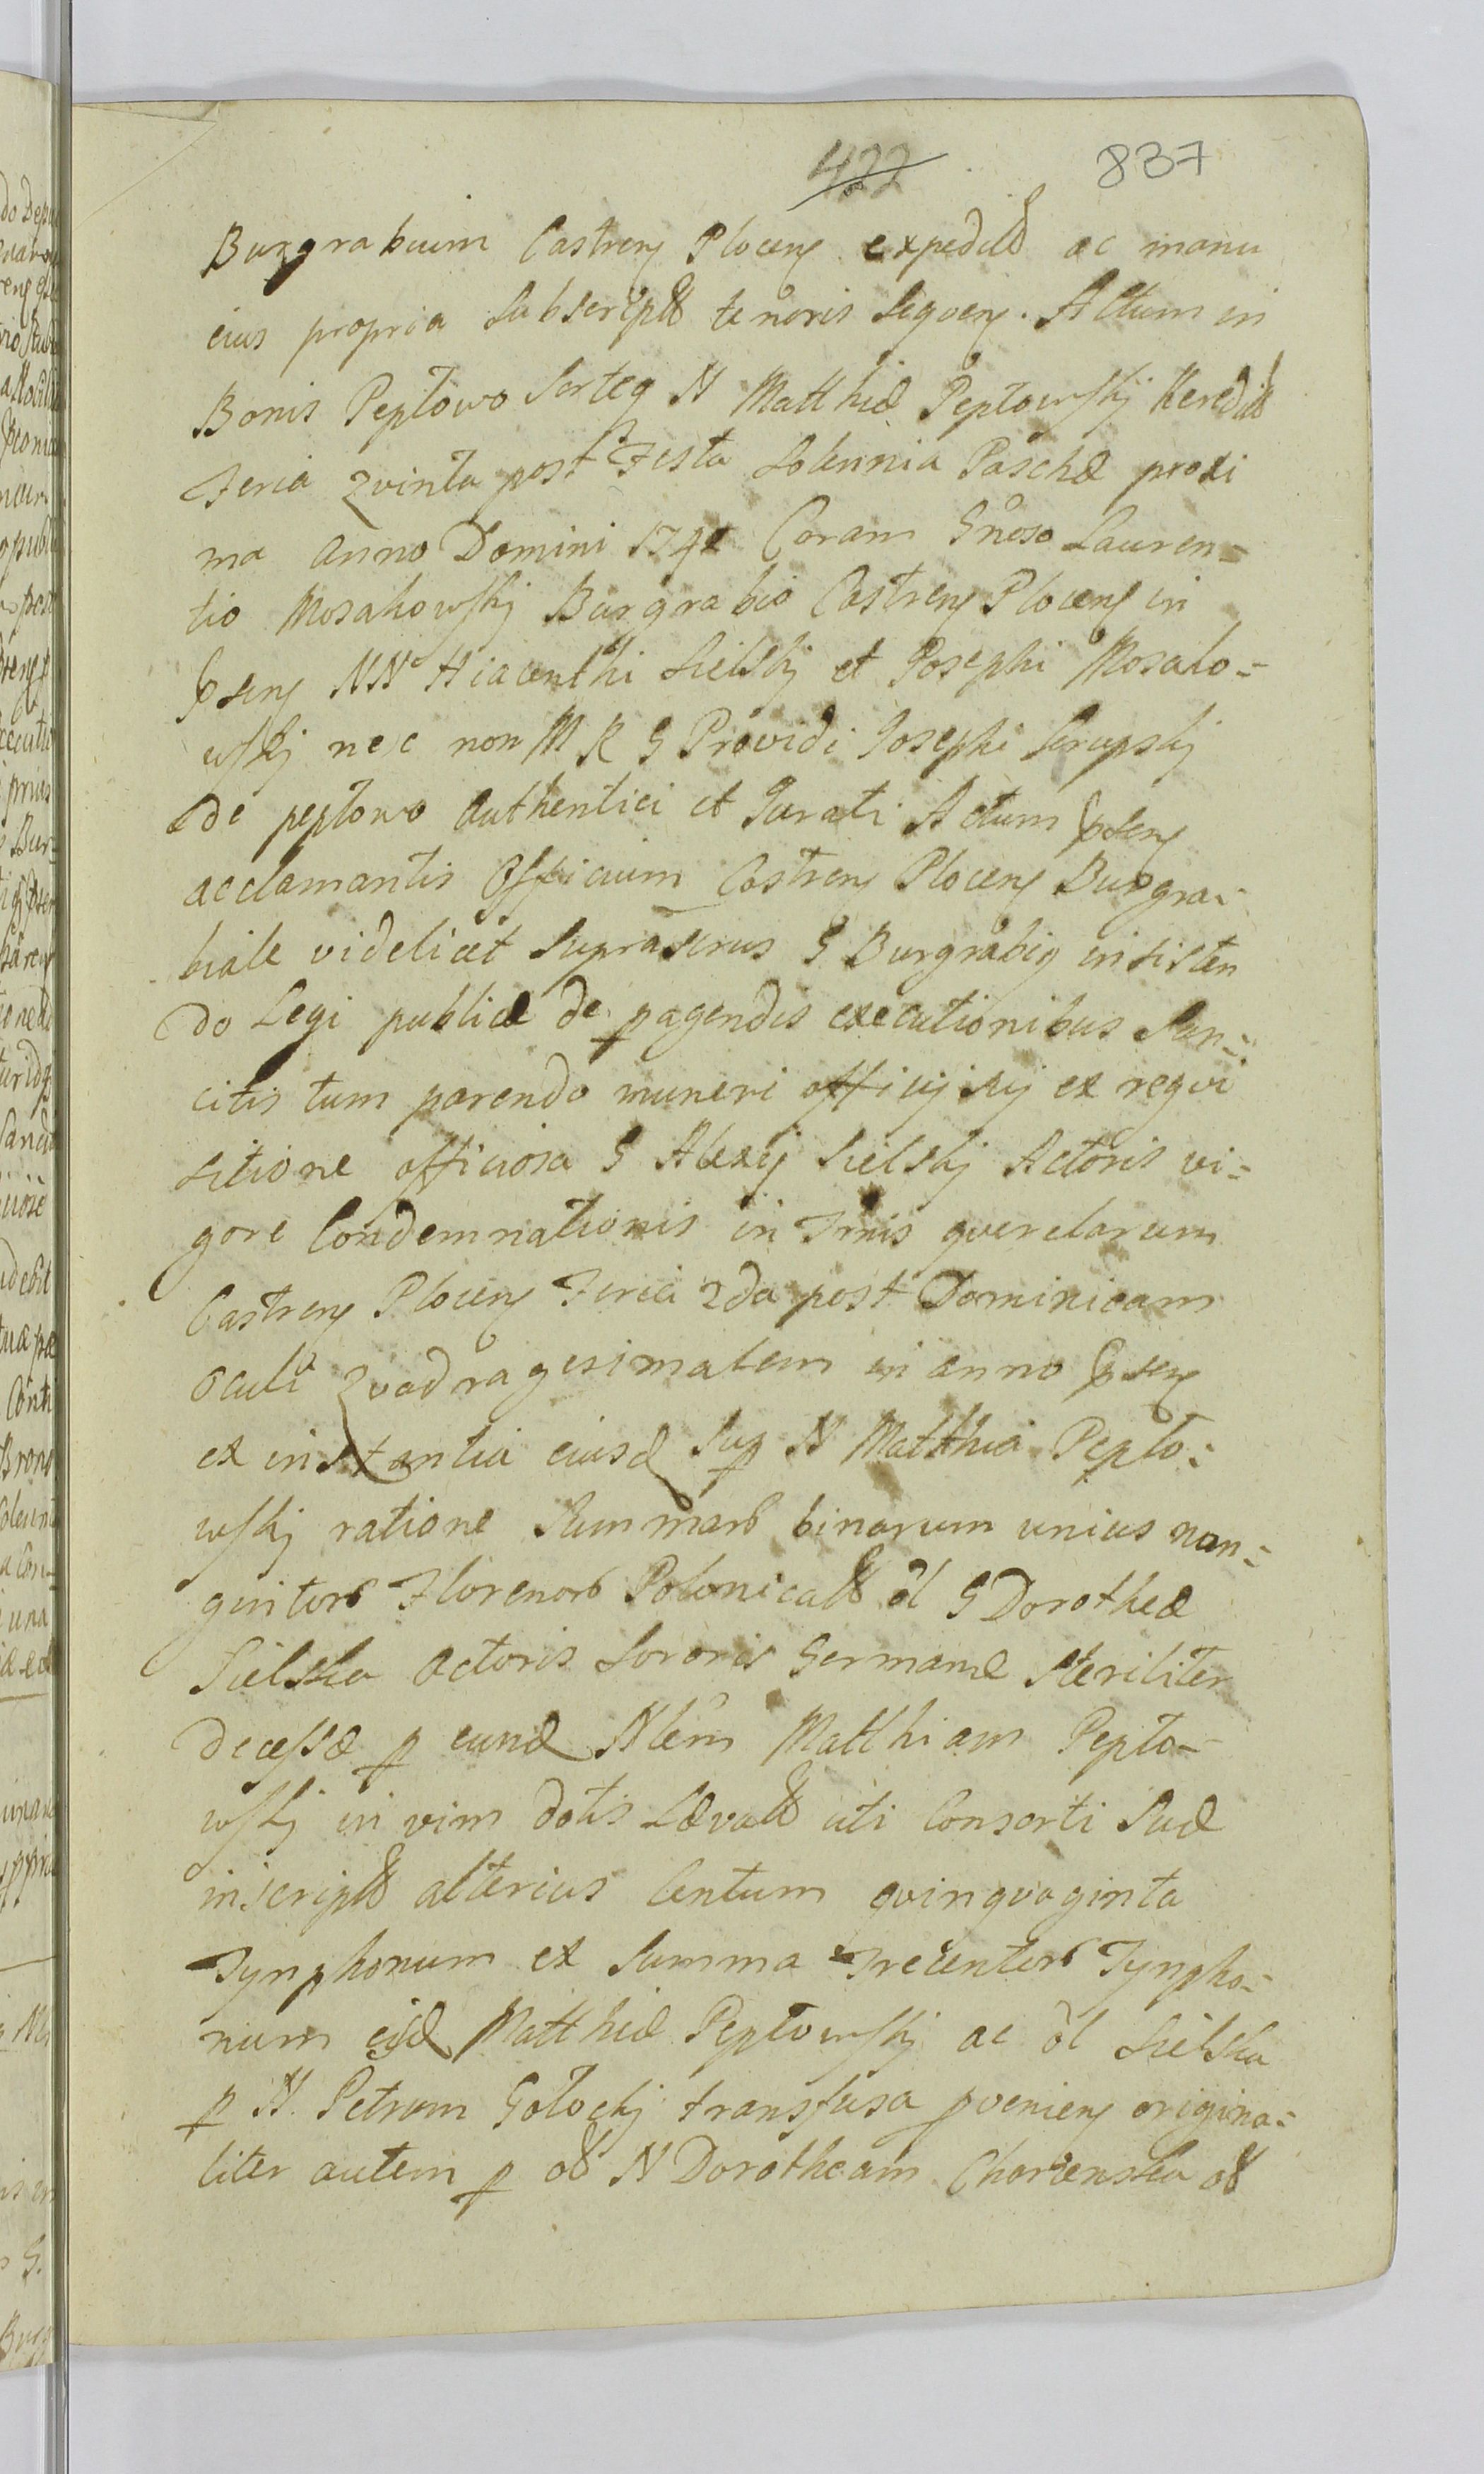 422 837
Burgrabium Castren Plocen expedit ac manu
eius propria Subscript tenoris Seqven. Actum in
Bonis Peptowo Sorteq N Matthiæ Peptowskj Heredit
Feria Qvinta post Festa Solennia Paschæ proxi
ma anno Domini 174 Coram Gnoso Lauren=
tio Mosakowskj Burgrabio Castren Plocen in
psen NN Hiacenthi Sielskj et Josephi Mosako=
wskj nec non M R G Providi Josephi Skrupskj
de peptowo Authentici et Jurati Actum psen
acclamantis Officium Castren Plocen Burgra=
biale videlicet Suprascrus G Burgrabiq insisten
do Legi publicæ de pagendis executionibus San=
citis tum parendo muneri officij sui ex reqvi
sitione officiosa G Alexij Sielskj Actoris vi=
gore Condemnationis in Trnis qverelarum
Castren Plocen Feria 2da post Dominicam
Oculi Qvadragesimalem in anno psen
ex instantia eiusd Sup N Matthia Pepto=
wskj ratione Summarb binarum unius non=
gentorb Florenorb Polonicalb ol G Dorotheæ
Sielska Actoris Sororis Germanæ Steriliter
decessæ p eund Nlem Matthiam Pepto=
wskj in vim dotis Lævatb uti Consorti Suæ
inscriptb alterius Centum qvinqvaginta
Tynphonum ex Summa Trecentorb Tynpho=
num eisd Matthiæ Peptowskj ac ol Sielska
p N. Petrum Gołockj transfusa pvenien origina=
liter autem p N Dorotheam